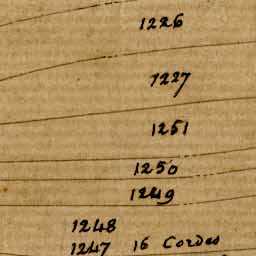 1226
1227
1251
1250
1249
1248
1247 16 Cordes